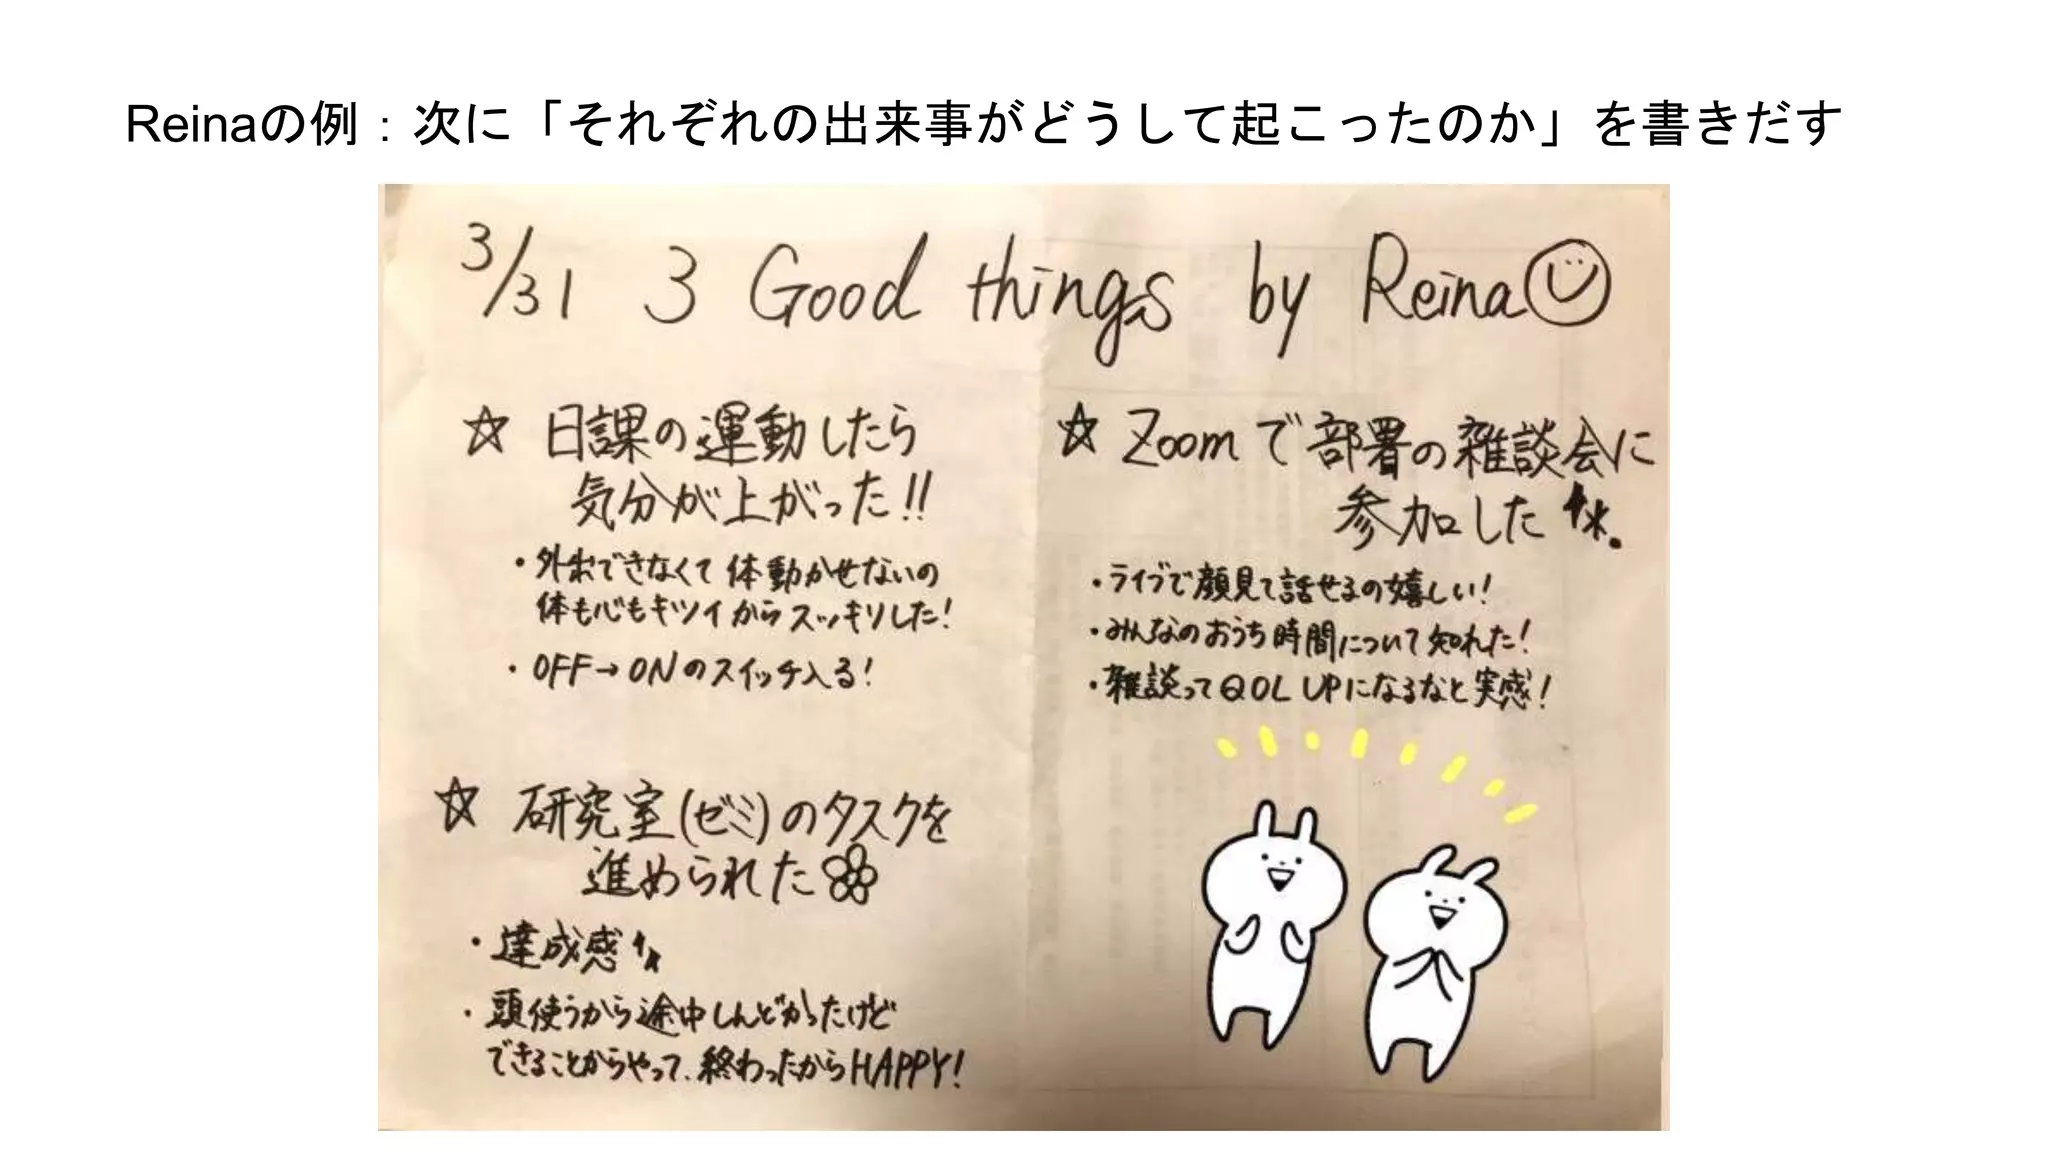 Reinaの例：次に「それぞれの出来事がどうして起こったのか」を書きだす
3/31 3 Good things by Reina
☆ 日課の運動したら
気分が上がった!!
・外出できなくて体動かせないの
体も心もキツイからスッキリした!
・OFF→ONのスイッチ入る!
☆ Zoomで部署の雑談会に
参加した
・ライブで顔見て話せるの嬉しい!
・みんなのおうち時間について知れた!
・雑談ってQOL UPになるなと実感!
☆ 研究室(ゼミ)のタスクを
進められた
・達成感
・頭使うから途中しんどかったけど
できることからやって、終わったからHAPPY!